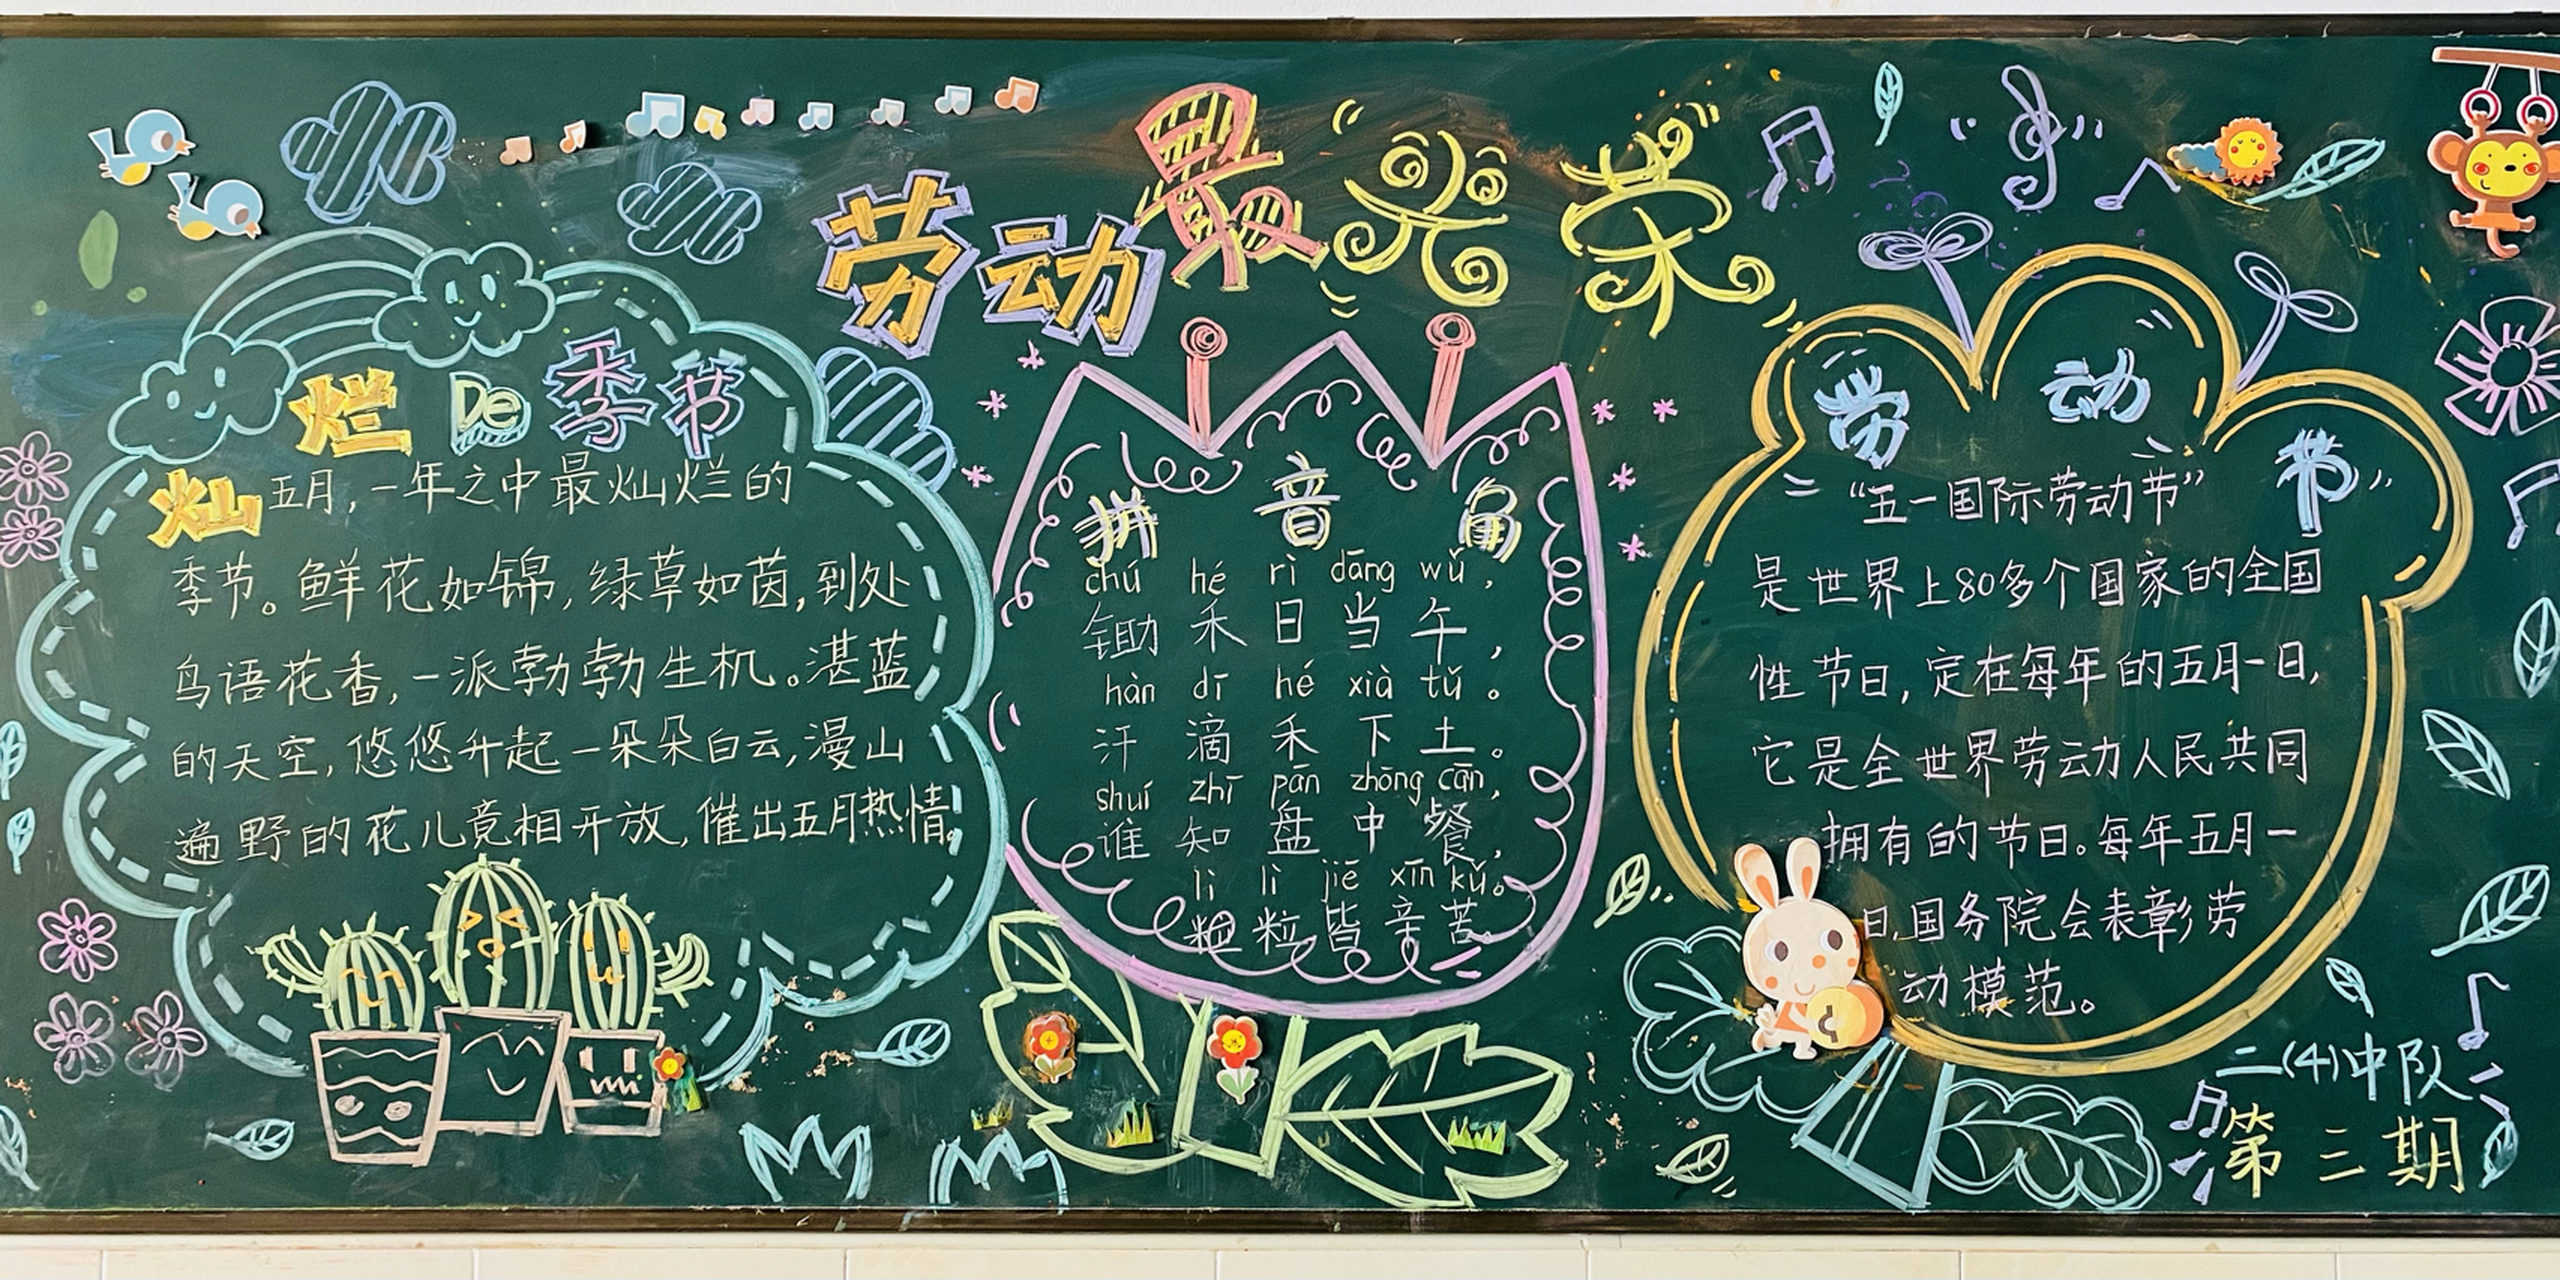 劳动最光荣
灿烂De季节
五月,一年之中最灿烂的
季节。鲜花如锦,绿草如茵,到处
鸟语花香,一派勃勃生机。湛蓝
的天空,悠悠升起一朵朵白云,漫山
遍野的花儿竟相开放,催出五月热情。
拼音角
chú hé rì dāng wǔ,
锄禾日当午,
hàn dī hé xià tǔ。
汗滴禾下土。
shuí zhī pān zhōng cān,
谁知盘中餐,
lì lì jiē xīn kǔ。
粒粒皆辛苦。
劳动节
“五一国际劳动节”
是世界上80多个国家的全国
性节日,定在每年的五月一日,
它是全世界劳动人民共同
拥有的节日。每年五月一
日,国务院会表彰劳
动模范。
二(4)中队
第三期